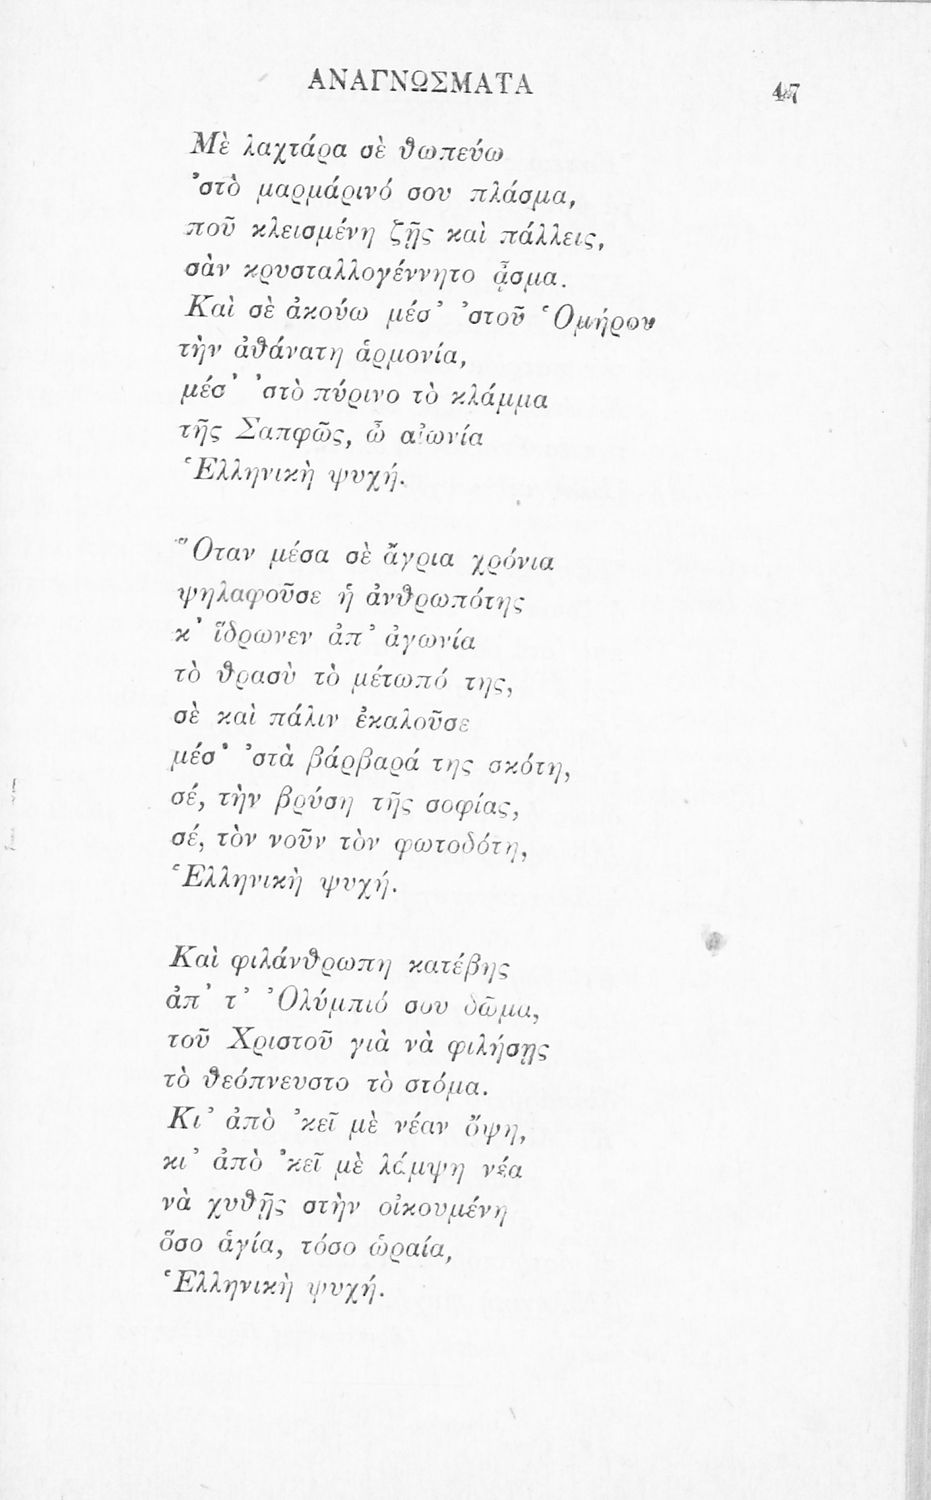 ΑΝΑΓΝΩΣΜΑΤΑ 47
Μὲ λαχτάρα σὲ θωπεύω
'στὸ μαρμάρινό σου πλάσμα,
ποῦ κλεισμένη ζῇς καὶ πάλλεις,
σὰν κρυσταλλογέννητο ᾆσμα.
Καὶ σὲ ἀκούω μέσ' 'στοῦ Ὁμήρου
τὴν ἀθάνατη ἁρμονία,
μέσ' 'στὸ πύρινο τὸ κλάμμα
τῆς Σαπφῶς, ὦ αἰωνία
Ἑλληνικὴ ψυχή.
Ὅταν μέσα σὲ ἄγρια χρόνια
ψηλαφοῦσε ἡ ἀνθρωπότης
κ' ἵδρωνεν ἀπ' ἀγωνία
τὸ θρασὺ τὸ μέτωπό της,
σὲ καὶ πάλιν ἐκαλοῦσε
μέσ' 'στὰ βάρβαρά της σκότη,
σέ, τὴν βρύση τῆς σοφίας,
σέ, τὸν νοῦν τὸν φωτοδότη,
Ἑλληνικὴ ψυχή.
Καὶ φιλάνθρωπη κατέβης
ἀπ' τ' Ὀλύμπιό σου δῶμα,
τοῦ Χριστοῦ γιὰ νὰ φιλήσῃς
τὸ θεόπνευστο τὸ στόμα.
Κι' ἀπὸ 'κεῖ μὲ νέαν ὄψη,
κι' ἀπὸ 'κεῖ μὲ λάμψη νέα
νὰ χυθῇς στὴν οἰκουμένη
ὅσο ἁγία, τόσο ὡραία,
Ἑλληνικὴ ψυχή.